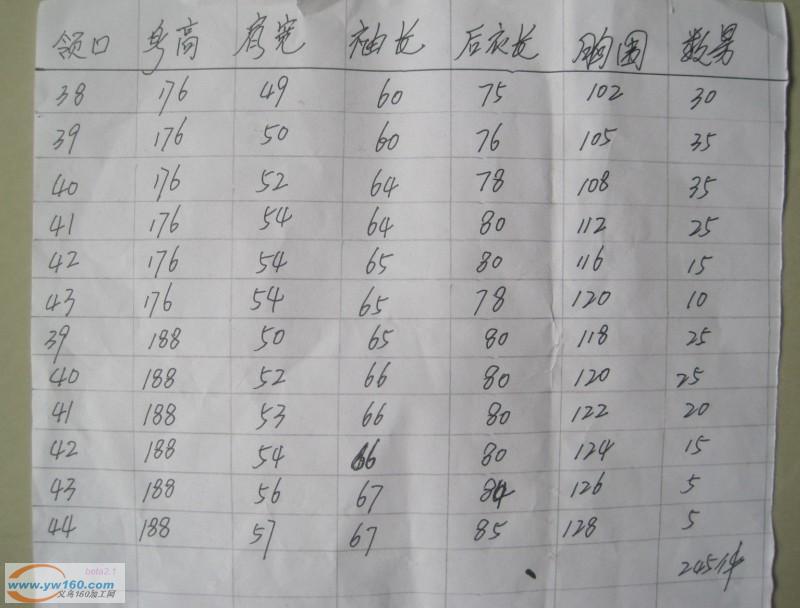 领口 身高 肩宽 袖长 后衣长 胸围 数量
38 176 49 60 75 102 30
39 176 50 60 76 105 35
40 176 52 64 78 108 35
41 176 54 64 80 112 25
42 176 54 65 80 116 15
43 176 54 65 78 120 10
39 188 50 65 80 118 25
40 188 52 66 80 120 25
41 188 53 66 80 122 20
42 188 54 66 80 124 15
43 188 56 67 84 126 5
44 188 57 67 85 128 5
245件
beta2.1
www.yw160.com
义乌160加工网